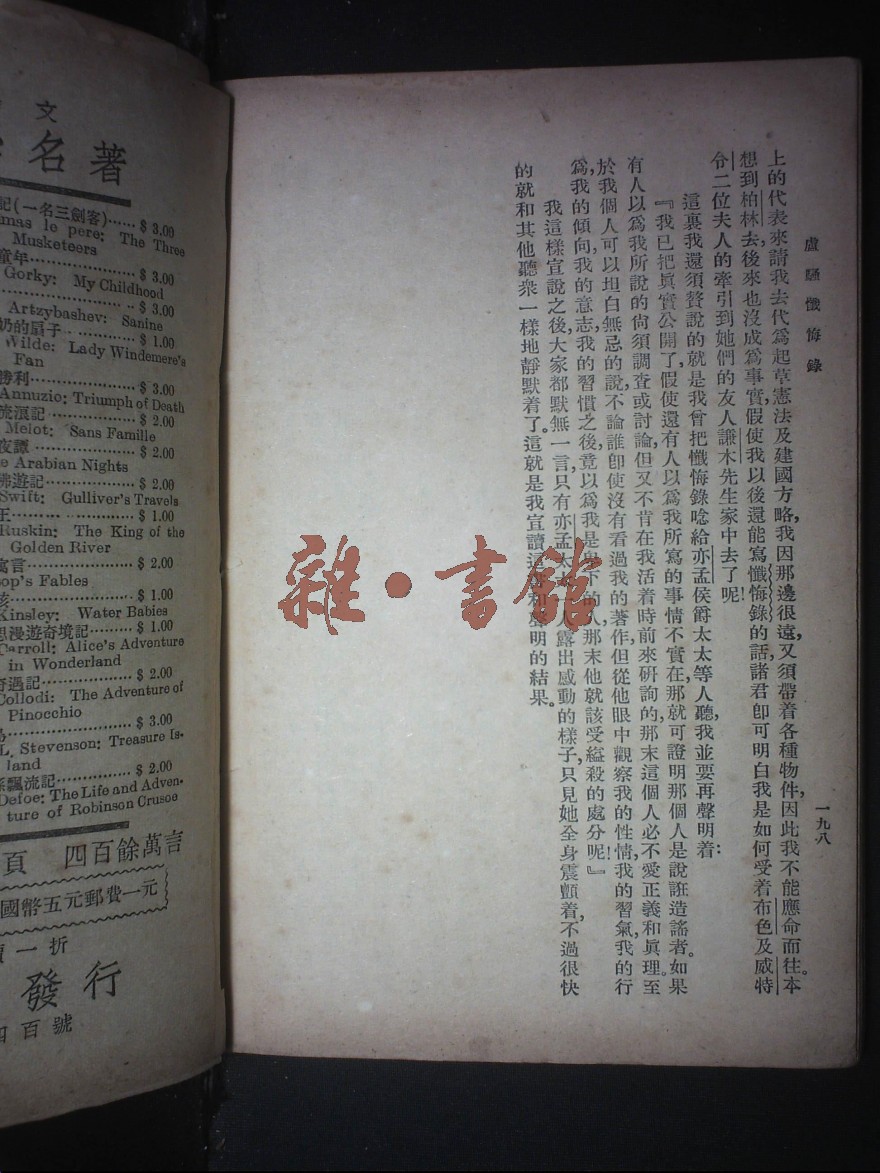 盧騷懺悔錄
一九八
上的代表來請我去代爲起草憲法及建國方略，我因那邊很遠，又須帶着各種物件，因此我不能應命而往。本
想到柏林去後來也沒成爲事實，假使我以後還能寫懺悔錄的話，諸君卽可明白我是如何受着布色及威特
令二位夫人的牽引到她們的友人謙木先生家中去了呢！
這裏我還須贅說的就是我曾把懺悔錄唸給亦孟侯爵太太等人聽，我並要再聲明着：
『我已把眞實公開了，假使還有人以爲我所寫的事情不實在，那就可證明那個人是說誑造謠者。如果
有人以爲我所說的尙須調查或討論，但又不肯在我活着時前來硏詢的，那末這個人必不愛正義和眞理。至
於我個人可以坦白無忌的說，不論誰卽使沒有看過我的著作，但從他眼中觀察我的性情，我的習氣，我的行
爲，我的傾向，我的意志，我的習慣之後，竟以爲我是下的人，那末他就該受縊殺的處分呢！』
我這樣宣說之後，大家都默無一言，只有亦孟太太一人露出感動的樣子，只見她全身震顫着，不過很快
的就和其他聽衆一樣地靜默着了。這就是我宣讀這聲明的結果。
雜·書館
文
名著
記(一名三劍客)…… $ 3.00
mas le pere: The Three
Musketeers
童年…… $ 3.00
Gorky: My Childhood
…… $ 3.00
Artzybashev: Sanine
奶的扇子…… $ 1.00
Wilde: Lady Windemere's
Fan
勝利…… $ 3.00
Annuzio: Triumph of Death
流浪記…… $ 2.00
Melot: Sans Famille
夜譚…… $ 2.00
e Arabian Nights
彿遊記…… $ 2.00
Swift: Gulliver's Travels
王…… $ 1.00
Ruskin: The King of the
Golden River
寓言…… $ 2.00
op's Fables
孩…… $ 1.00
Kinsley: Water Babies
思漫遊奇境記…… $ 1.00
Carroll: Alice's Adventure
in Wonderland
奇遇記…… $ 2.00
Collodi: The Adventure of
Pinocchio
島…… $ 3.00
L. Stevenson: Treasure Is-
land
孫飄流記…… $ 2.00
Defoe: The Life and Adven-
ture of Robinson Crusoe
頁 四百餘萬言
國幣五元郵費一元
一折
發行
四百號